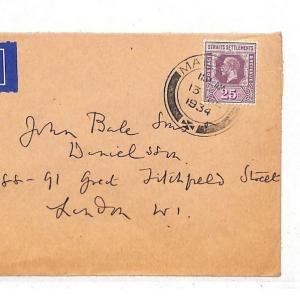 STRAITS SETTLEMENTS
25
MA
13
1934
John Bale Esq
Danielsson
88-91 Great Titchfield Street
London W1.